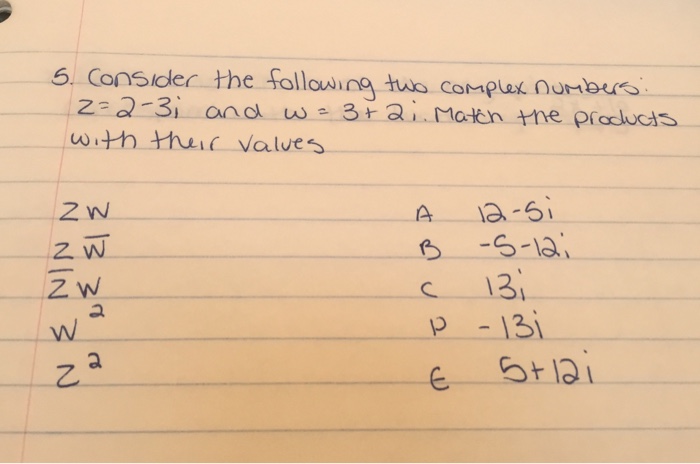 5. Consider the following two complex numbers:
z=2-3i and w = 3+2i. Match the products
with their values
zw A 12-5i
z w̅ B -5-12i
z̅ w C 13i
w² D -13i
z² E 5+12i